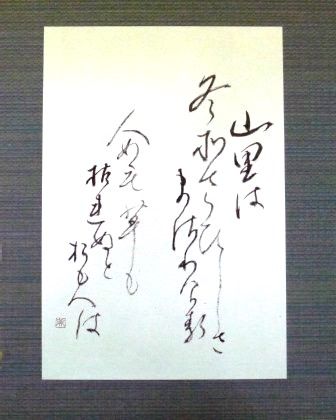 山里は
冬曽さひしさ
まさりける
人めも草も
枯れぬと
おもへは